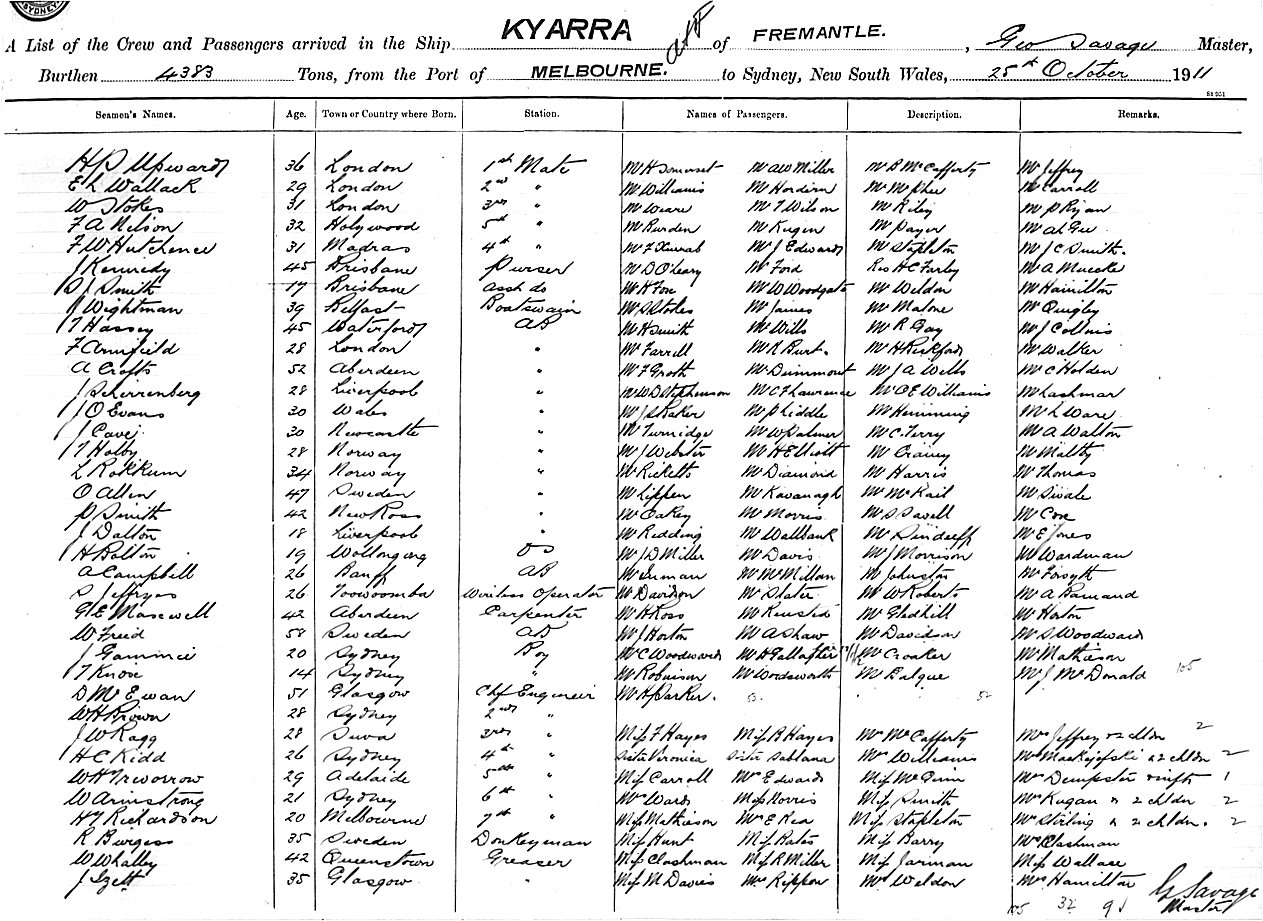 SYDNEY
A List of the Crew and Passengers arrived in the Ship KYARRA of FREMANTLE. , Geo Savage Master,
Burthen 4383 Tons, from the Port of MELBOURNE. to Sydney, New South Wales, 25th October 1911
Seamen's Names. Age. Town or Country where Born. Station. Names of Passengers. Description. Remarks.
H P Upward 36 London 1st Mate Mr H Somerset Mr A W Miller Mr B McCafferty Mr Jeffrey
E L Wallack 29 London 2nd " Mr Williams Mr Hordern Mr McPhee Mr Carroll
W Stokes 31 London 3rd " Mr Weare Mr T Wilson Mr Riley Mr P Ryan
F A Nelson 32 Holywood 5th " Mr Burden Mr Kugen Mr Payer Mr A L Gee
F W Hutchence 31 Madras 4th " Mr F Mr J Edwards Mr Stapleton Mr J C Smith.
J Kennedy 45 Brisbane Purser Mr D O'Leary Mr Ford Rev H C Farby Mr A Muecke
S J Smith 17 Brisbane asst do Mr H Fox Mr W Woodgate Mr Weldon Mr Hamilton
J Wightman 39 Belfast Boatswain Mr S Stokes Mr James Mr Malone Mr Quigley
T Hassey 45 Waterford AB Mr H Smith Mr Wills Mr R Gay Mr J Collins
F Armfield 28 London " Mr Farrell Mr R Burt. Mr H Rickford Mr Walker
A Crofts 52 Aberdeen " Mr F Groth Mr Dummont Mr J A Wells Mr C Holden
J Schierenberg 28 Liverpool " Mr W D Stephenson Mr C F Lawrence Mr C E Williams Mr Lashmar
J O Evans 30 Wales " Mr J S Baker Mr P Liddle Mr Hemming Mr L Ware
J Cave 30 Newcastle " Mr Turnidge Mr W Palmer Mr C Terry Mr A Walton
T Holby 28 Norway " Mr J Webster Mr H Elliott Mr Crainey Mr Maltby
L Rokkum 34 Norway " Mr Ricketts Mr Diamond Mr Harris Mr Thomas
O Allen 47 Sweden " Mr Lippen Mr Kavanagh Mr McKail Mr Swale
P Smith 42 New Ross " Mr Oakey Mr Morris Mr S Savell Mr Cox
J Dalton 18 Liverpool " Mr Redding Mr Wallbank Mr Sindeeff Mr E Jones
H Bolton 19 Wollongong OS Mr J D Miller Mr Davis Mr J Morrison Mr Wardman
A Campbell 26 Banff AB Mr Inman Mr McMillan Mr Johnston Mr Forsyth
S Jeffryes 26 Toowoomba Wireless Operator Mr Davidson Mr Slater Mr W Roberts Mr A Barnand
G E Maxwell 42 Aberdeen Carpenter Mr H Ross Mr Keusted Mr Gledhill Mr Horton
W Freid 58 Sweden AB Mr J Horton Mr A Shaw Mr Davidson Mr S Woodward
J Gammie 20 Sydney Boy Mr C Woodward Mr H Gallagher Mr Croaker Mr Mathieson
T Knox 14 Sydney " Mr Robinson Mr Wordsworth Mr Balque Mr J McDonald 105
D McEwan 51 Glasgow Chf Engineer Mr H Parker. 53 52
W H Brown 28 Sydney 2nd "
J W Ragg 28 Suva 3rd " Miss F Hayes Miss R Hayes Mrs McCafferty Mrs Jeffrey & 2 chldn 2
H C Kidd 26 Sydney 4th " Sister Veronica Sister Sabbana Mrs Williams Mrs Mackiejefski & 2 chldn 2
W H Treworrow 29 Adelaide 5th " Miss Carroll Mrs Edwards Miss McGuin Mrs Dempster & inft 1
W Armstrong 21 Sydney 6th " Mrs Ward Miss Norris Miss Smith Mrs Kugan & 2 chldn 2
H J Richardson 20 Melbourne 7th " Miss Mathieson Mrs E Rea Miss Stapleton Mrs Stirling & 2 chldn. 2
R Burgess 35 Sweden Donkeyman Miss Hunt Miss Bates Miss Barry Mrs Clashman
W Whalley 42 Queenstown Greaser Miss Clashman Miss R Miller Miss Jariman Miss Wallace
J Izett 35 Glasgow " Miss M Davis Mrs Rippon Mrs Weldon Mrs Hamilton
G Savage
Master
105 32 9